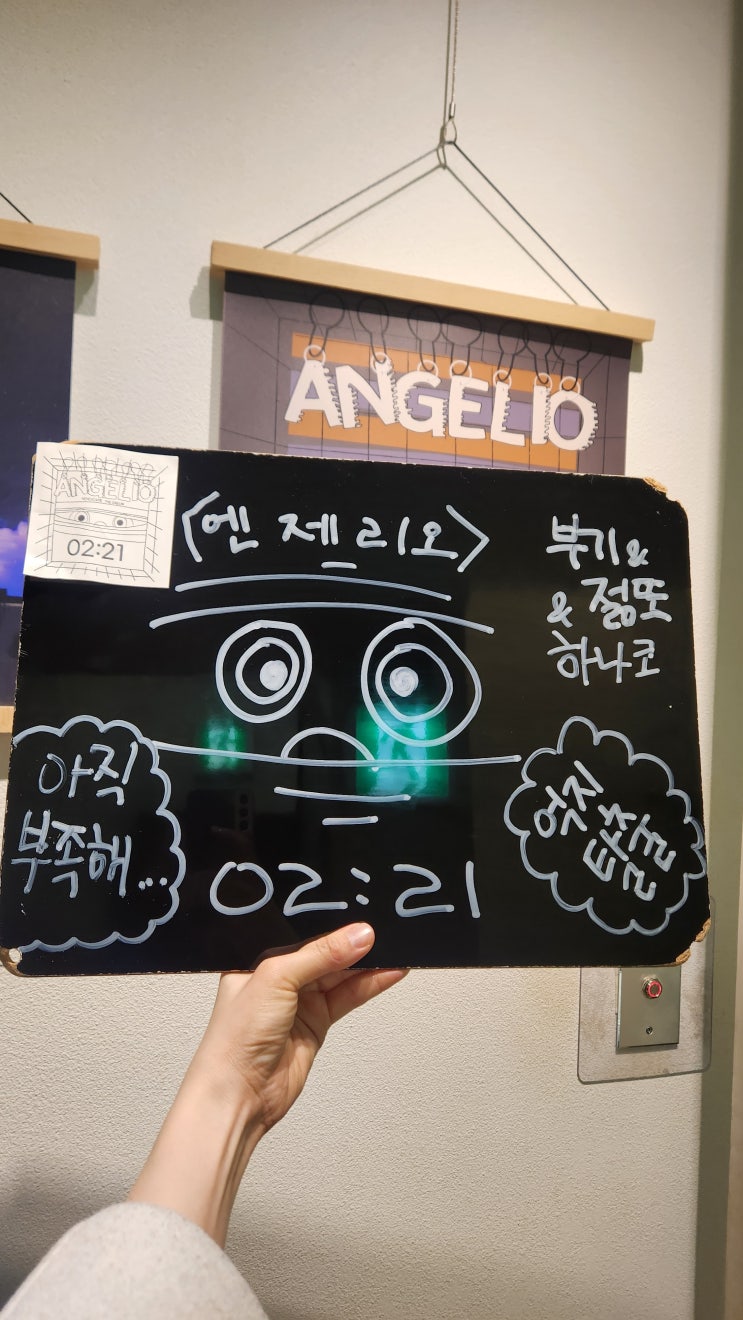 ANGELIO
ANGELIO
02:21
<엔제리오>
부기&
& 점또
하나코
아직
부족해...
억지
탈출
02:21